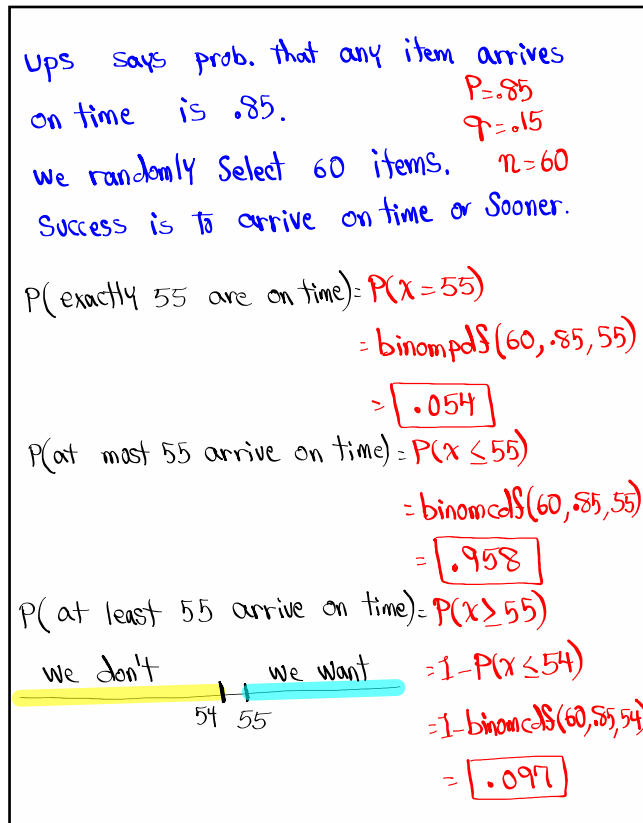 UPS says prob. that any item arrives
on time is .85.
P=.85
q=.15
We randomly Select 60 items.
n=60
Success is to arrive on time or Sooner.
P(exactly 55 are on time)= P(x=55)
= binompdf(60,.85,55)
= .054
P(at most 55 arrive on time)= P(x≤55)
= binomcdf(60,.85,55)
= .958
P(at least 55 arrive on time)= P(x≥55)
we don't we want
=1-P(x≤54)
54 55
=1-binomcdf(60,.85,54)
= .097